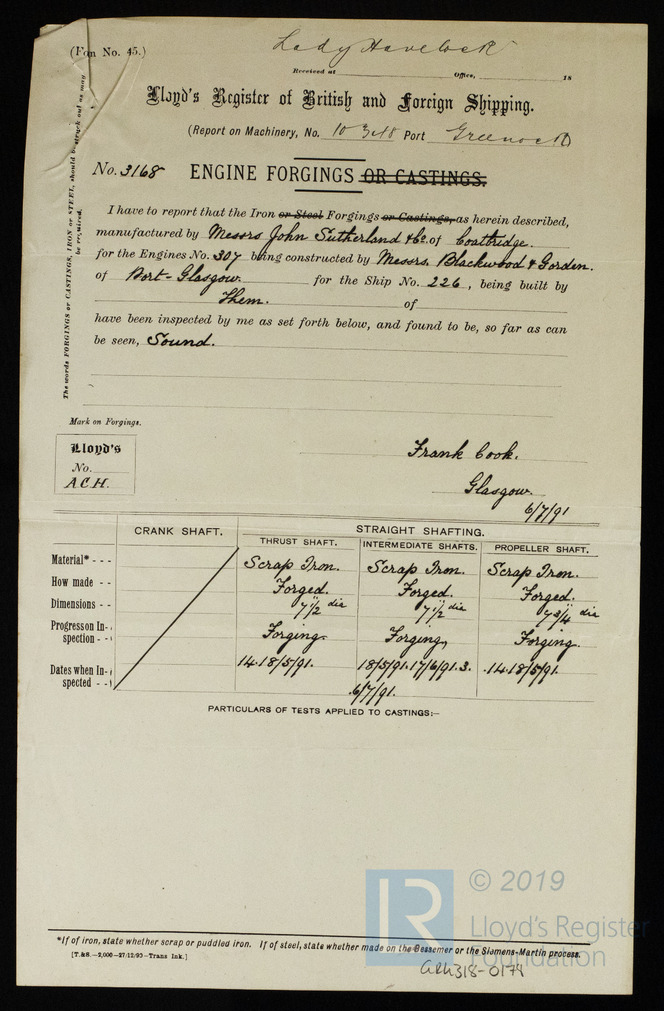 Lady Havelock
(Form No. 45.)
Received at Office, 18
Lloyd's Register of British and Foreign Shipping.
(Report on Machinery, No. Port Greenock)
No. 3168 ENGINE FORGINGS OR CASTINGS.
I have to report that the Iron or Steel Forgings or Castings, as herein described,
manufactured by Messrs John Sutherland & Co. of Coatbridge.
for the Engines No. 307 being constructed by Messrs. Blackwood & Gordon.
of Port-Glasgow. for the Ship No. 226, being built by
Them. of
have been inspected by me as set forth below, and found to be, so far as can
be seen, Sound.
The words FORGINGS or CASTINGS, IRON or STEEL, should be struck out as may
be required.
Mark on Forgings.
Lloyd's
No.
A.C.H.
Frank Cook.
Glasgow.
6/7/91
CRANK SHAFT. STRAIGHT SHAFTING.
THRUST SHAFT. INTERMEDIATE SHAFTS. PROPELLER SHAFT.
Material* - - - Scrap Iron. Scrap Iron. Scrap Iron.
How made - - Forged. Forged. Forged.
Dimensions - - 7 1/2" dia 7 1/2" dia 7 3/4" dia
Progress on In-
spection - - Forging. Forging. Forging.
Dates when In-
spected - - 14.18/5/91. 18/5/91.17/6/91.3. 14.18/5/91.
6/7/91.
PARTICULARS OF TESTS APPLIED TO CASTINGS:—
© 2019
LR
Lloyd's Register
Foundation
*If of iron, state whether scrap or puddled iron. If of steel, state whether made on the Bessemer or the Siemens-Martin process.
[T.&S.—2,000—27/12/90—Trans Ink.]
GRK318-0179